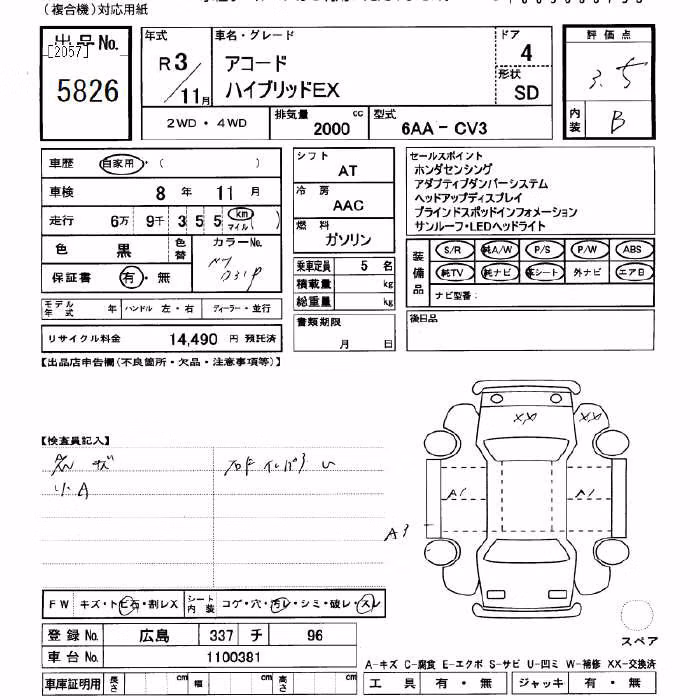 (複合機)対応用紙
出品No. 年式 車名・グレード ドア 評価点
[2057]
5826
R3/11月 アコード 4 3.5
ハイブリッドEX 形状 SD
2WD・4WD 排気量 2000 cc 型式 6AA-CV3 内装 B
車歴 自家用・( )
車検 8年 11月
走行 6万 9千 3 5 5 km マイル ( )
色 黒 色替 カラーNo.
保証書 有・無
モデル年式 年 ハンドル 左・右 ディーラー・並行
リサイクル料金 14,490 円 預託済
シフト AT
冷房 AAC
燃料 ガソリン
乗車定員 5 名
積載量 kg
総重量 kg
書類期限
月 日
セールスポイント
ホンダセンシング
アダプティブダンパーシステム
ヘッドアップディスプレイ
ブラインドスポットインフォメーション
サンルーフ・LEDヘッドライト
装備品 S/R 純A/W P/S P/W ABS
純TV 純ナビ 革シート 外ナビ エアB
ナビ型番:
後日品
【出品店申告欄(不良箇所・欠品・注意事項等)】
【検査員記入】
小A
XX XX
A1 A1
A3
FW キズ・トビ石・割レX シート内装 コゲ・穴・汚レ・シミ・破レ・スレ
登録No. 広島 337 チ 96
車台No. 1100381
車庫証明用 長さ cm 幅 cm 高さ cm
スペア
A-キズ C-腐食 E-エクボ S-サビ U-凹ミ W-補修 XX-交換済
工具 有・無 ジャッキ 有・無